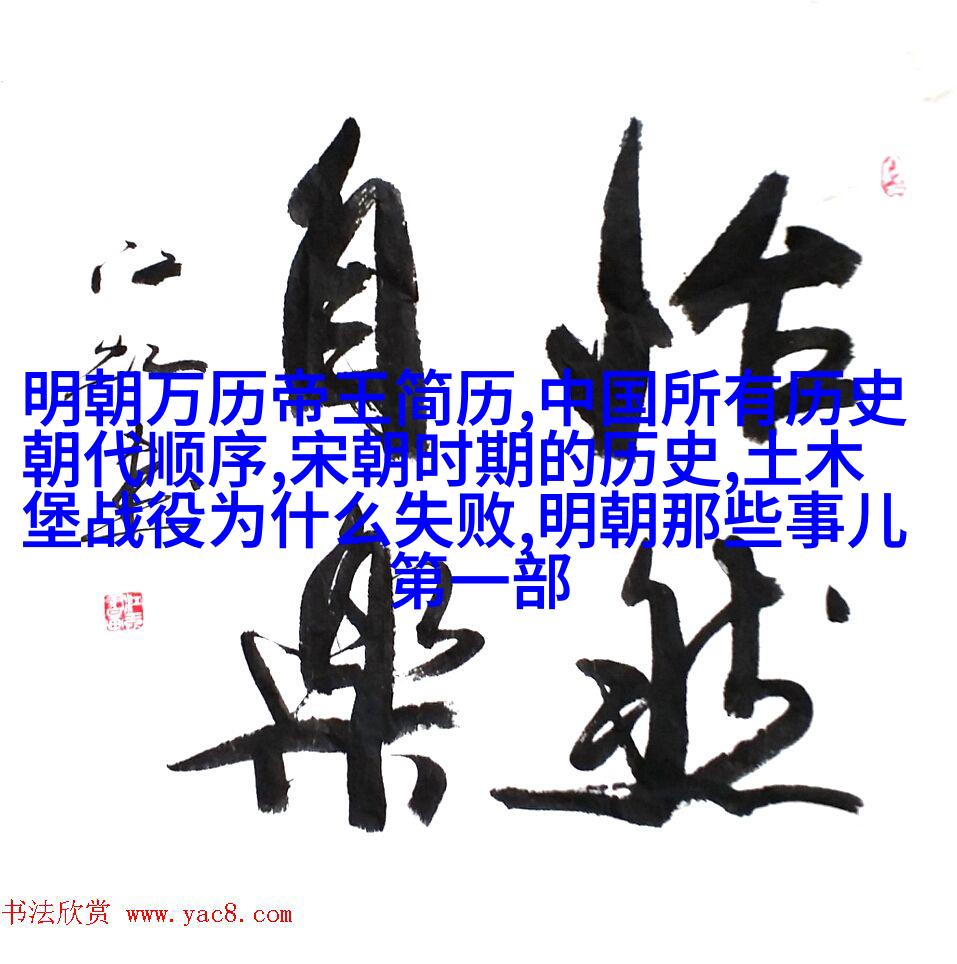 怡然
自樂
明朝万历帝王简历,中国所有历史
朝代顺序,宋朝时期的历史,土木
堡战役为什么失败,明朝那些事儿
第一部
书法欣赏 www.yac8.com